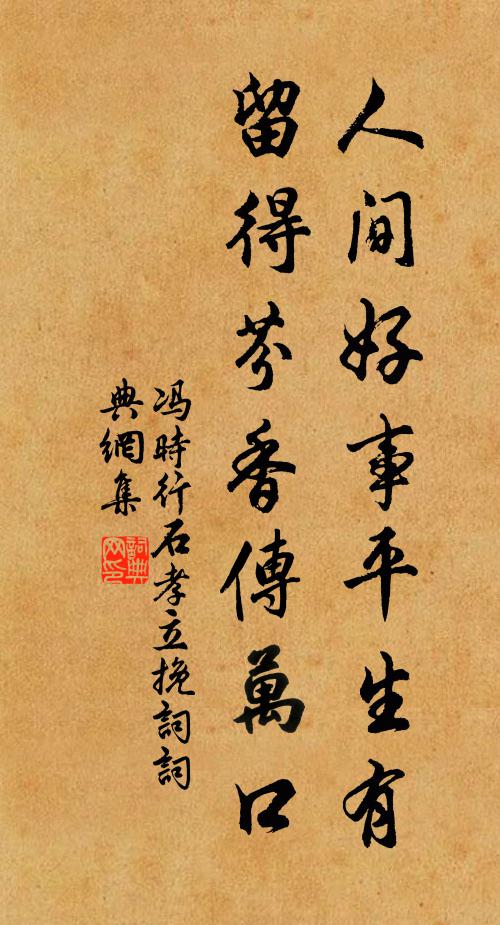 人间好事平生有
留得芬香傳萬口
冯時行石孝立挽詞詞
典網集
詞典
网印